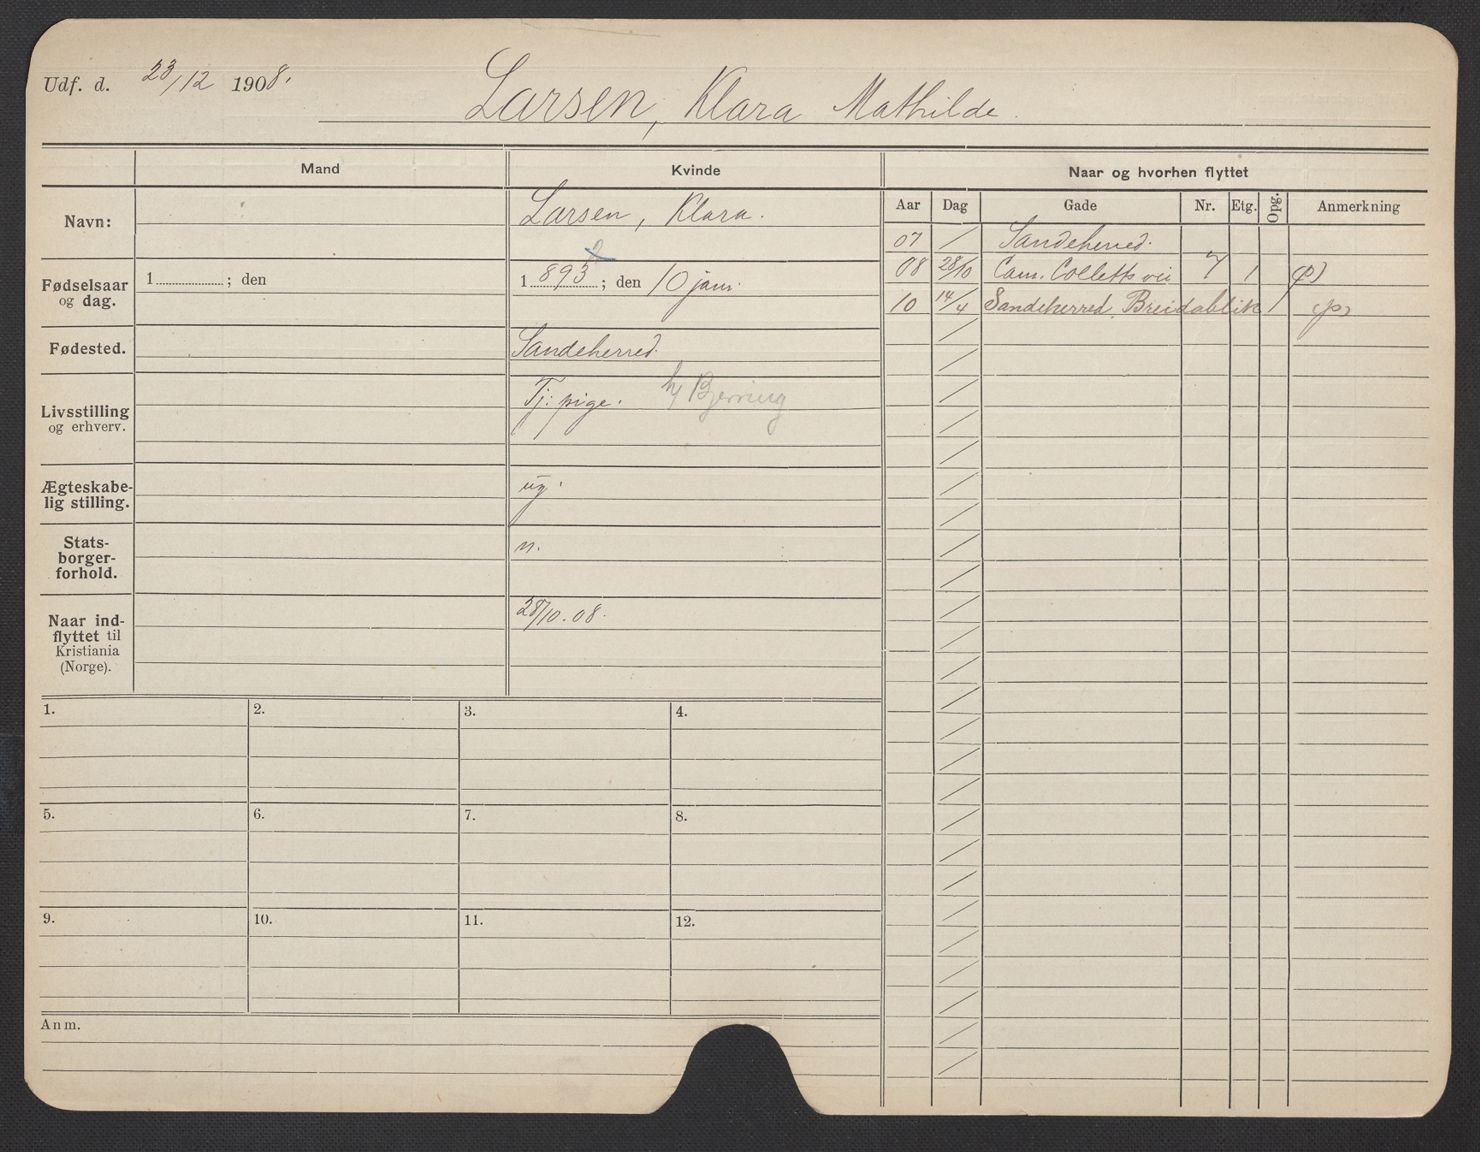 Udf. d. 23/12 1908.
Larsen, Klara Mathilde.
Mand
Kvinde
Naar og hvorhen flyttet
Aar Dag Gade Nr. Etg. Opg. Anmerkning
Navn:
Larsen, Klara.
07 / Sandeherred.
08 28/10 Cam. Colletts vei 7 1 (p)
10 14/4 Sandeherred, Breidablik (p)
Fødselsaar
og dag.
1 ; den
2
1 893 ; den 10 janr.
Fødested.
Sandeherred.
Livsstilling
og erhverv.
Tj: pige. h/ Bjerring
Ægteskabe-
lig stilling.
ug.
Stats-
borger-
forhold.
n.
Naar ind-
flyttet til
Kristiania
(Norge).
28/10.08.
1. 2. 3. 4.
5. 6. 7. 8.
9. 10. 11. 12.
Anm.